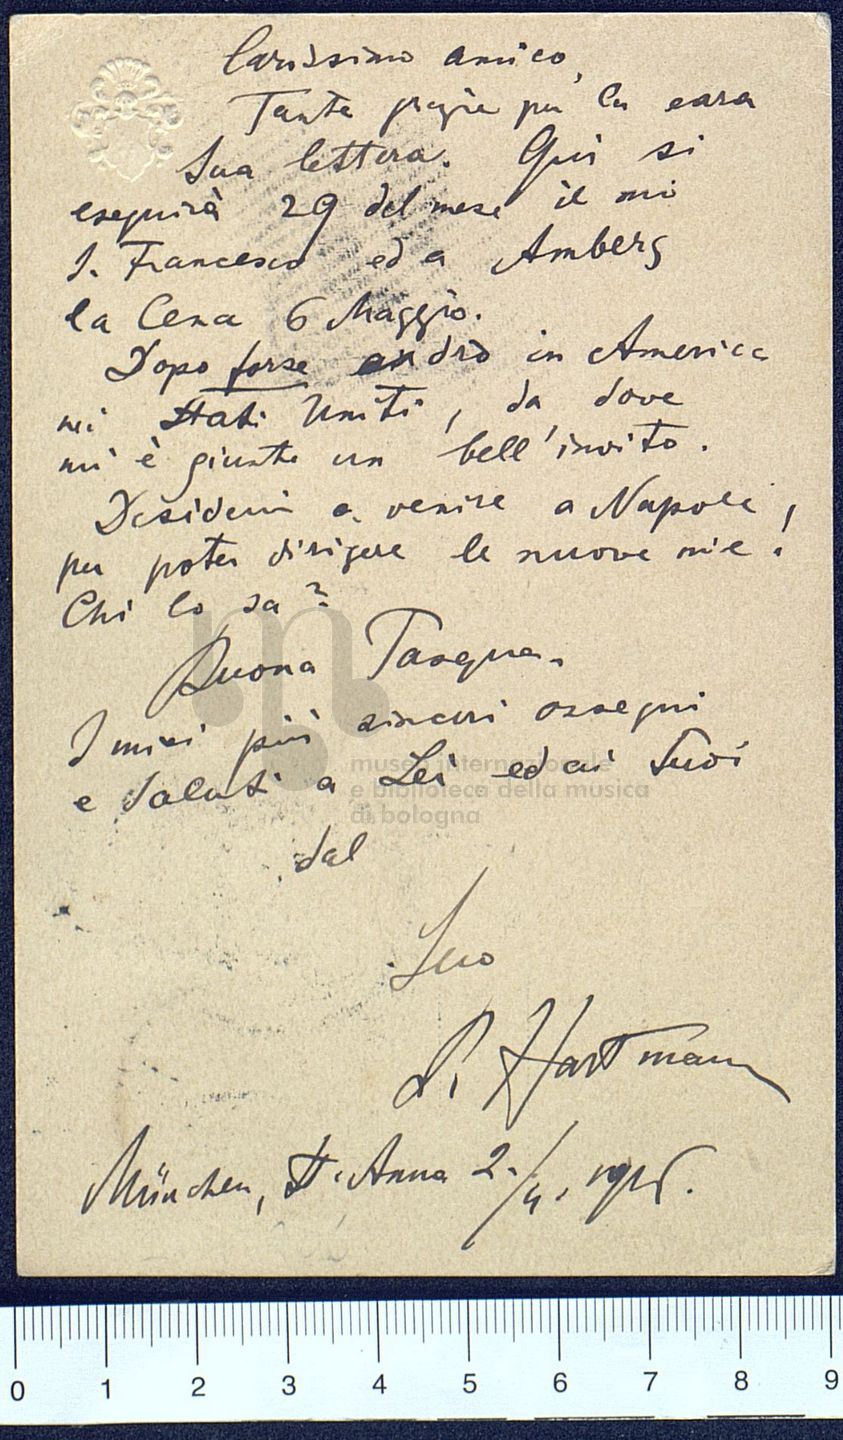 Carissimo amico,
Tante grazie per la cara
Sua lettera. Qui si
eseguirà 29 del mese il mio
S. Francesco ed a Amberg
la Cena 6 Maggio.
Dopo forse andrò in America
nei Stati Uniti, da dove
mi è giunto un bell'invito.
Desiderei a venire a Napoli,
per poter dirigere le nuove mie!
Chi lo sa?
Buona Pasqua.
I miei più sinceri ossequi
e saluti a Lei ed ai Suoi
dal
Suo
P. Hartmann
München, St. Anna 2./4.
museo internazionale
e biblioteca della musica
di bologna
0 1 2 3 4 5 6 7 8 9